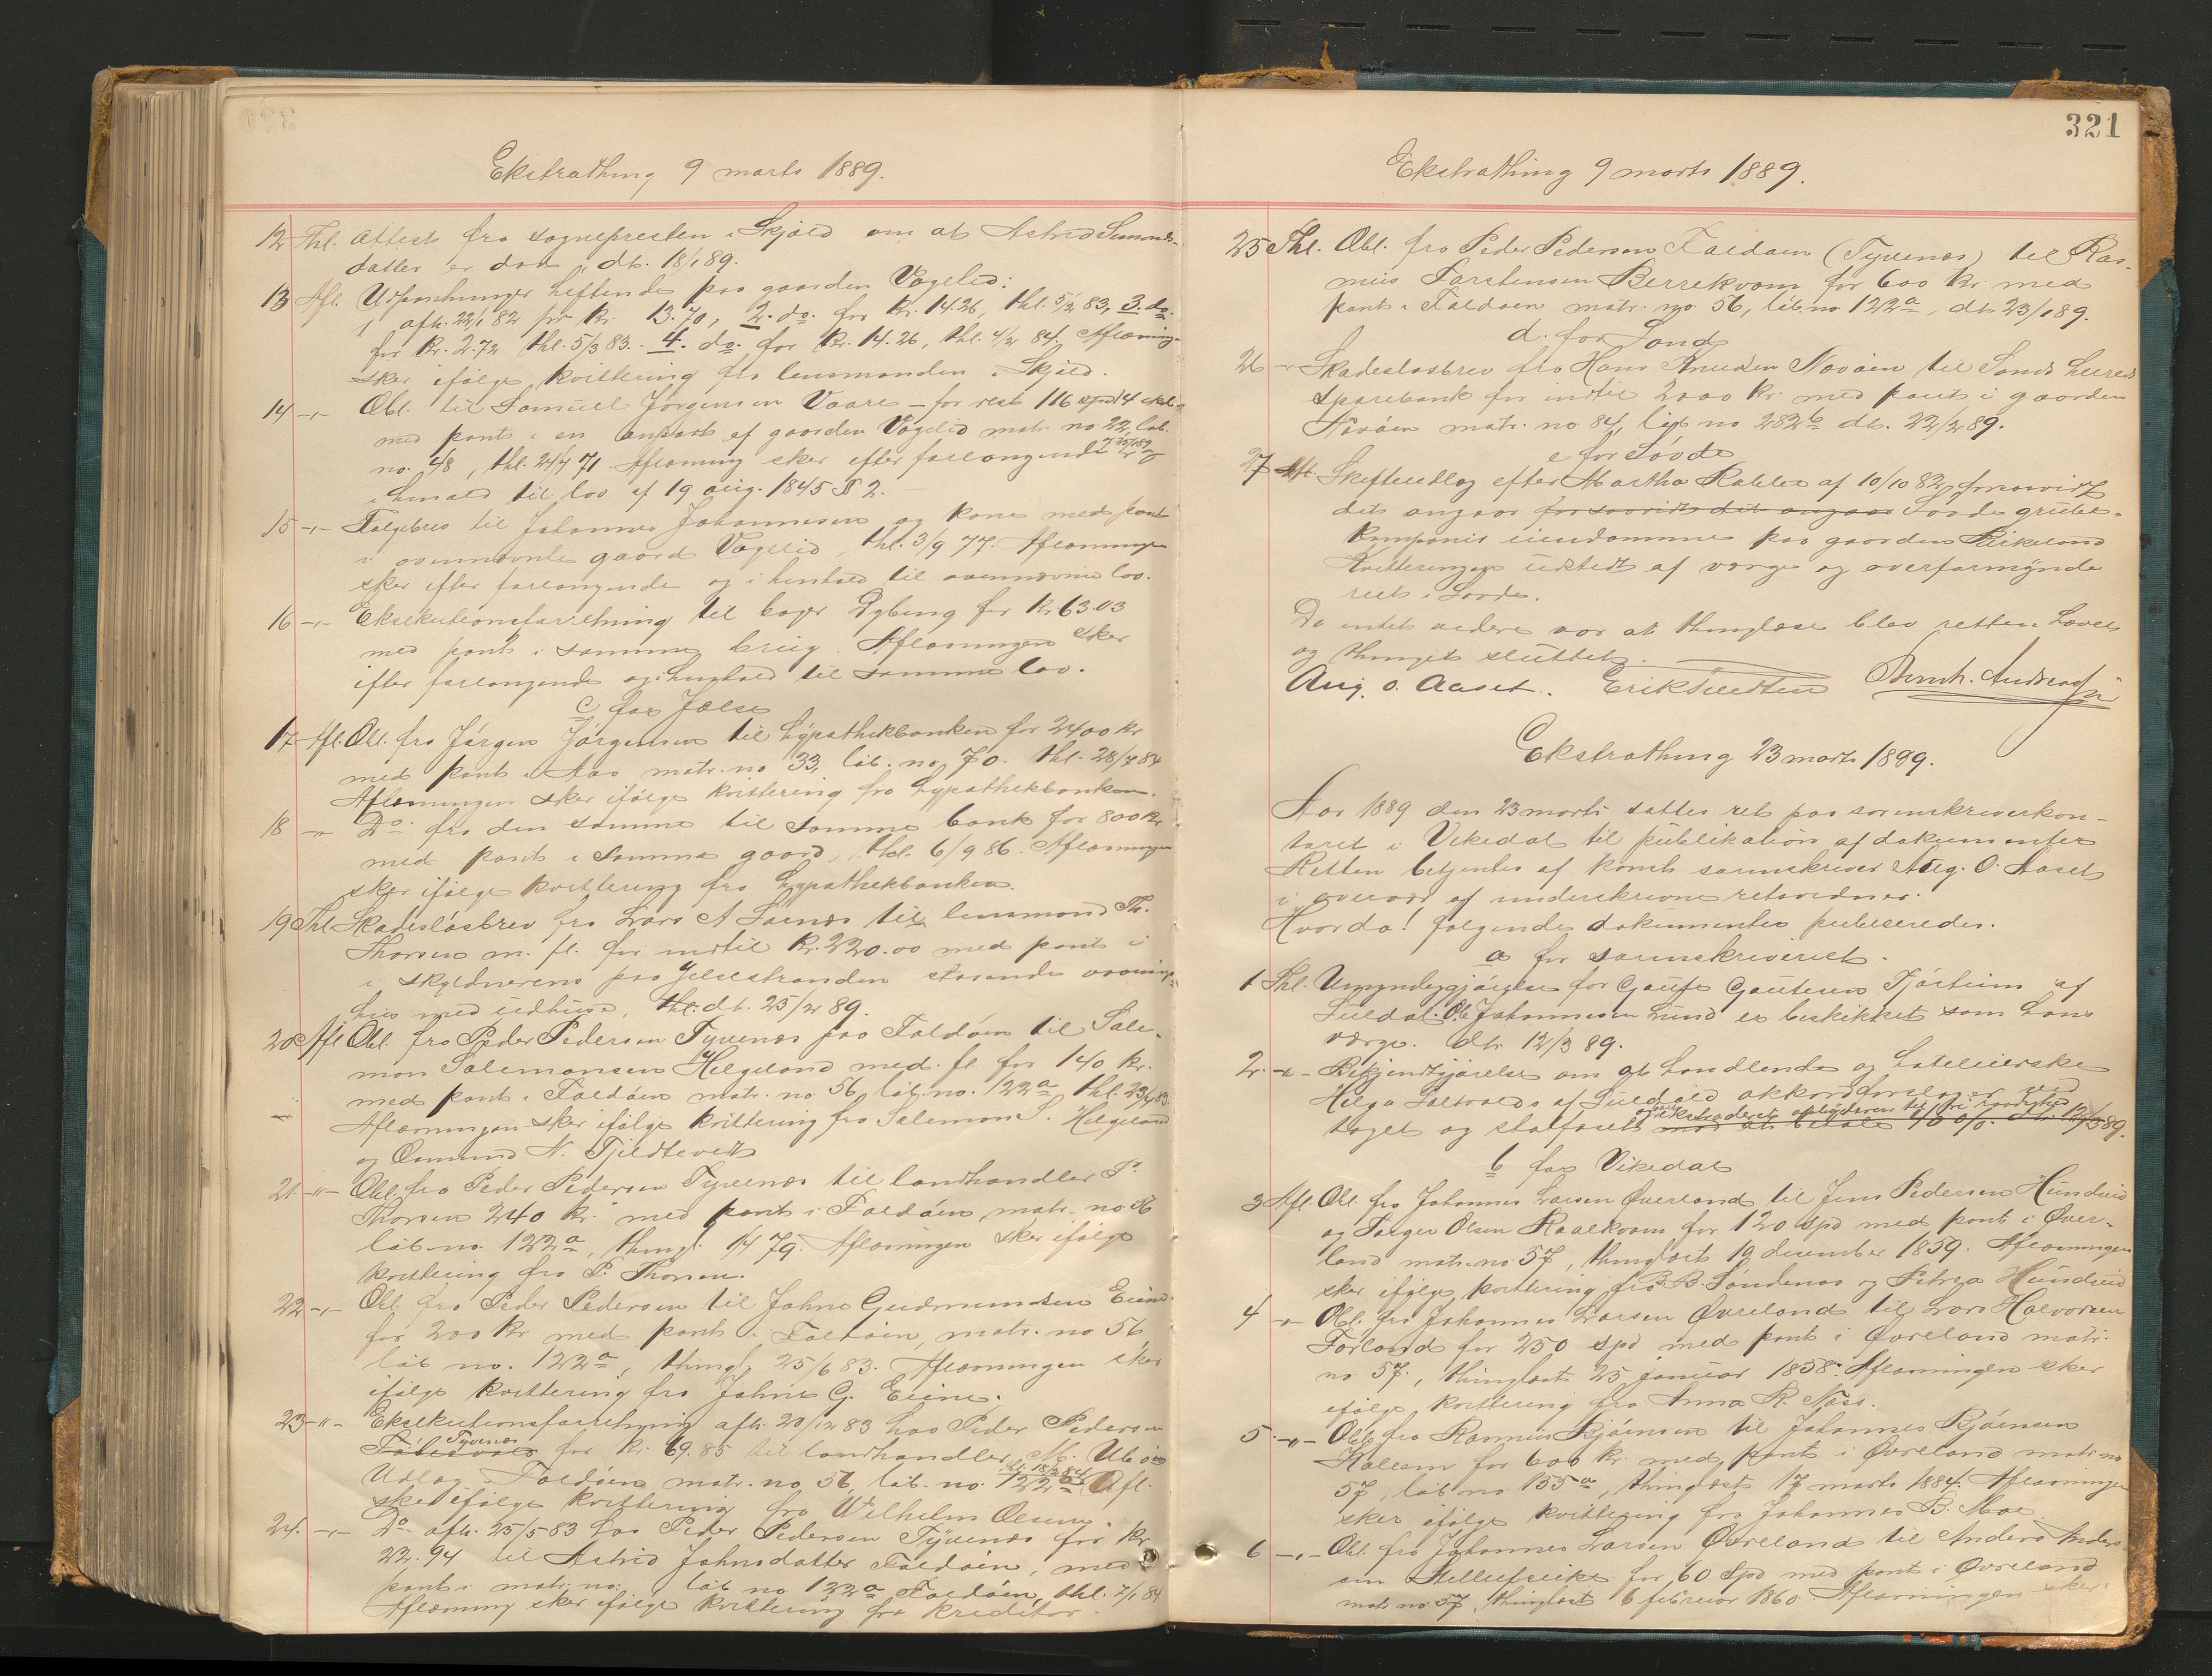 Ekstrathing 9 marts 1889.
12 Thl. Attest fra sognepresten i Skjold om at Astrid Simons-
datter er død, dt. 18/1 89.
13 Afl. Udpantninger heftende paa gaarden Vogelid:
1 afh. 22/1 82 for Kr. 13.70, 2. do. for Kr. 14.26, thl. 5/2 83, 3. do.
for Kr. 2.72 thl. 5/3 83. 4. do. for Kr. 14.26, thl. 4/2 84. Aflæsning
sker ifølge kvittering fra lensmanden i Skjold.
14 -"- Obl. til Samuel Jørgensen Vaare - for rest 116 spd 14 skl
med pant i en anpart af gaarden Vogelid matr. no. 22, løb.
no. 48, thl. 24/7 71. Aflæsning sker efter forlangende
i henhold til lov af 19 aug. 1845 § 2.
15 -"- Følgebrev til Johannes Johannesen og kone med pant
i ovennævnte gaard Vogelid, thl. 3/9 77. Aflæsningen
sker efter forlangende og i henhold til ovennævnte lov.
16 -"- Eksekutionsforretning til kjøbm. Dybing for Kr 63.03
med pant i samme brug. Aflæsningen sker
efter forlangende og i henhold til samme lov.
c for Jelse
17 Afl. Obl. fra Jørgen Jørgensen til Hypothekbanken for 2400 kr
med pant i Aas matr. no 33, løb. no 70. thl. 28/7 84
Aflæsningen sker ifølge kvittering fra Hypothekbanken.
18 -"- Do. fra den samme til samme bank for 800 kr
med pant i samme gaard, thl. 6/9 86. Aflæsningen
sker ifølge kvittering fra Hypothekbanken.
19 Thl Skadesløsbrev fra Lars A til lensmand Th.
Thorsen m. fl. for indtil Kr. 220.00 med pant i
i skyldnerens paa Jelsestranden staaende vaanings-
hus med udhuse, thl. dt. 25/2 89.
20 Afl Obl. fra Peder Pedersen Tyvenæs paa Foldøen til Sale-
mon Salemonsen Helgeland med fl. for 140 kr.
med pant i Foldøen matr. no 56 løb. no. 122 a thl.
Aflæsningen sker ifølge kvittering fra Salemon S. Helgeland
og Osmund N. Tjeldtveit
21 -"- Obl. fra Peder Pedersen Tyvenæs til landhandler P.
Thorsen 240 kr. med pant i Foldøen, matr. no 56
løb no. 122 a, thingl. 79. Aflæsningen sker ifølge
kvittering fra P. Thorsen.
22 -"- Obl. fra Peder Pedersen til Johne Gudmundsen Eiene
for 200 kr med pant i Foldøen, matr. no 56,
løb no. 122 a, thingl. 25/6 83. Aflæsningen sker
ifølge kvittering fra Johne G. Eiene.
23 -"- Eksekutionsforretning afh. 20/12 83 hos Peder Pedersen
Tyvenæs for kr. 69.85 til landhandler M.
Udlæg i Foldøen matr. no 56, løb. no. 122 a Afl.
sker ifølge kvittering fra Wilhelm Olsen.
24. -"- Do. afh. 25/5 83 hos Peder Pedersen Tyvenæs for kr
22.94 til Astrid Johnsdatter Foldøen, med
pant i matr. no. løb no 122 a Foldøen, thl. 7/1 84
Aflæsning sker ifølge kvittering fra kreditor.
321
Ekstrathing 9 marts 1889.
25 Thl. Obl. fra Peder Pedersen Foldøen (Tyvenæs) til Ras-
mus Torstensen Berrekvam for 600 Kr. med
pant i Foldøen matr. no 56, løb. no 122 a, dt 23/1 89.
d. for Sand
26 -"- Skadesløsbrev fra Hans Knudsen Novøen til Sands herreds
Sparebank for indtil 2000 kr. med pant i gaarden
Novøen matr. no 84, løb no 282 b dt. 22/2 89.
e for Søvde
27 Afl. Skifteudlæg efter Martha Rabbe af 10/10 82, forsaavidt
det angaar for saavidt det angaar Sovde grube-
kompanis eiendomme paa gaarden Birkeland
Kvitteringen udstedt af værge og overformynde
riet i Sovde.
Da intet videre var at thinglæse blev retten hævet
og thinget sluttet.
Aug. O. Aaset. Erik Tvedten Bernh. Andreasen
Ekstrathing 23 marts 1889.
Aar 1889 den 23 marts sattes ret paa sorenskriverkon-
toret i Vikedal til publikation af dokumenter
Retten betjentes af konst. sorenskriver Aug. O. Aaset
i overvær af underskrevne retsvidner.
Hvorda! følgende dokumenter publiceredes.
a for sorenskriveriet.
1 Thl. Umyndiggjørelse for Gaute Gautesen Fjørtun af
Suldal. Ole Johannesen Lund er beskikket som hans
værge. dt. 12/3 89.
2. -"- Bekjendtgjørelse om at handlende og hotelierske
Helga af Suldal akkordforslag er ved
taget og stadfæstet mod at betale 40 %. dt. 12/3 89.
b for Vikedal
3 Afl. Obl. fra Johannes Larsen Øvreland til Jens Pedersen Hundseid
og Torger Olsen Raalkvam for 120 spd med pant i Øvre-
land matr. no 57, thinglæst 19 december 1859. Aflæsningen
sker ifølge kvittering fra B. B. Søndenaa og Petrea Hundseid
4 -"- Obl. fra Johannes Larsen Øvreland til Lars Halvorsen
Førland for 250 spd med pant i Øvreland matr.
no 57., thinglæst 25 januar 1858. Aflæsningen sker
ifølge kvittering fra Anna R. Næss.
5. -"- Obl. fra Rasmus Bjørnsen til Johannes Bjørnsen
for 600 kr. med pant i Øvreland matr. no
57, løb no. 155 a, thinglæst 17 marts 1884. Aflæsningen
sker ifølge kvittering fra Johannes B. Moe.
6 -"- Obl. fra Johannes Larsen Øvreland til Anders Anders-
sen for 60 spd med pant i Øvreland
matr no 57, thinglæst 6 februar 1860. Aflæsningen sker